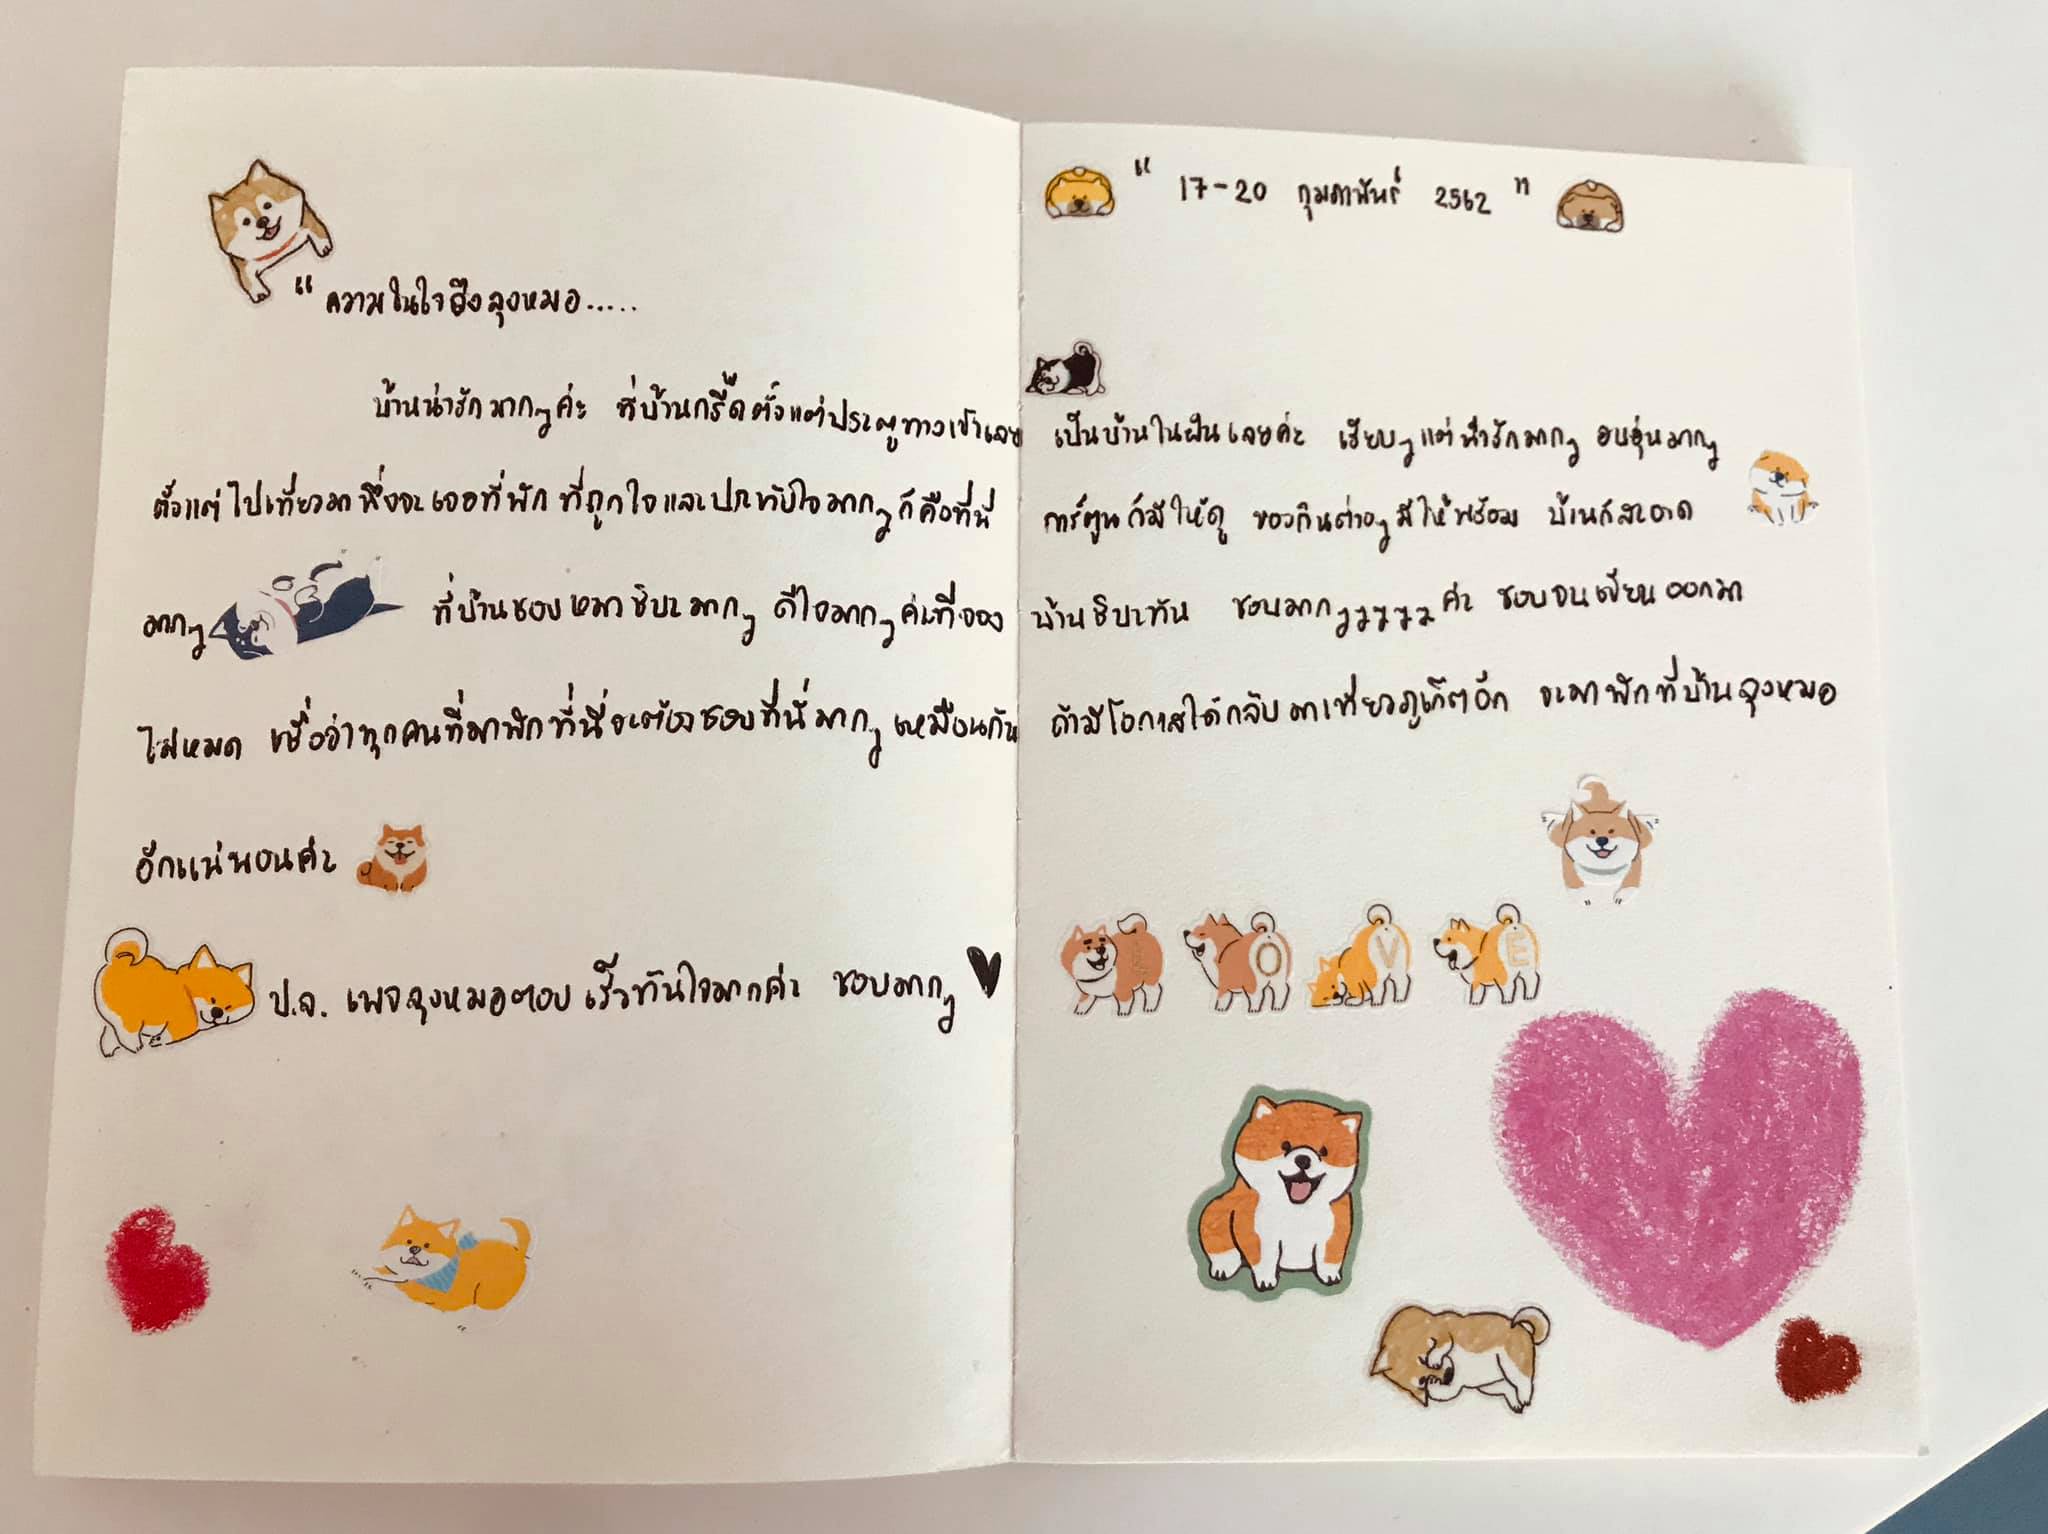 “ 17-20 กุมภาพันธ์ 2562 ”
“ความในใจถึงลุงหมอ.....
บ้านน่ารักมากๆค่ะ ที่บ้านกรี๊ดตั้งแต่ประตูทางเข้าเลย
ตั้งแต่ไปเที่ยวมาพึ่งจะเจอที่พัก ที่ถูกใจและประทับใจมากๆก็คือที่นี่
มากๆ ที่บ้านชอบหมาชิบะมากๆ ดีใจมากๆค่ะที่จอง
ไม่หมด เชื่อว่าทุกคนที่มาพักที่นี่จะต้องชอบที่นี่มากๆเหมือนกัน
อีกแน่นอนค่ะ
ป.ล. เพจลุงหมอตอบเร็วทันใจมากค่ะ ชอบมากๆ
เป็นบ้านในฝันเลยค่ะ เรียบๆแต่น่ารักมากๆ อบอุ่นมากๆ
การ์ตูนก็มีให้ดู ของกินต่างๆมีให้พร้อม บ้านก็สะอาด
บ้านชิบะทัน ชอบมากๆๆๆๆๆค่ะ ชอบจนเขียนออกมา
ถ้ามีโอกาสได้กลับมาเที่ยวภูเก็ตอีก จะมาพักที่บ้านลุงหมอ
L O V E